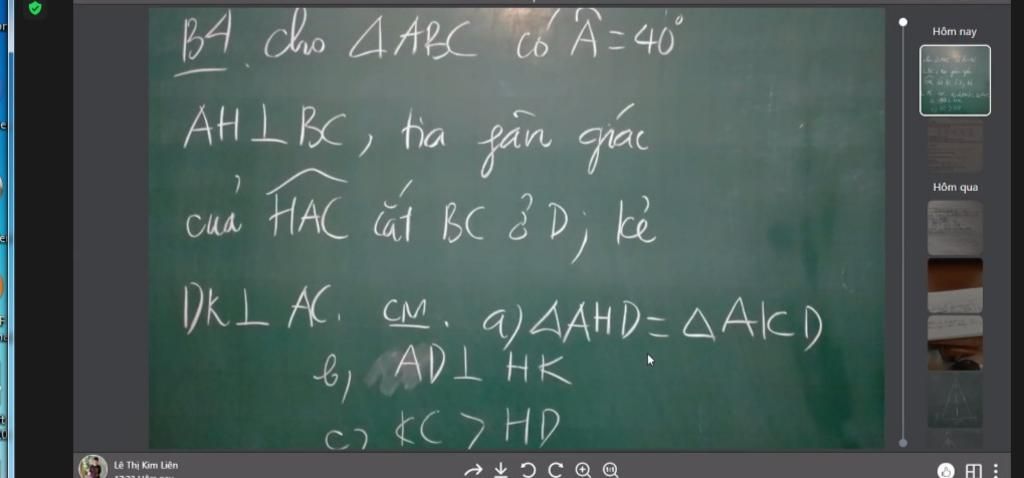 B4. cho △ABC có Â = 40°
AH ⊥ BC, tia gân giác
của HAC cắt BC ở D; kẻ
DK ⊥ AC. CM. a) △AHD = △AKD
b) AD ⊥ HK
c) KC > HD
Hôm nay
Hôm qua
Lê Thị Kim Liên